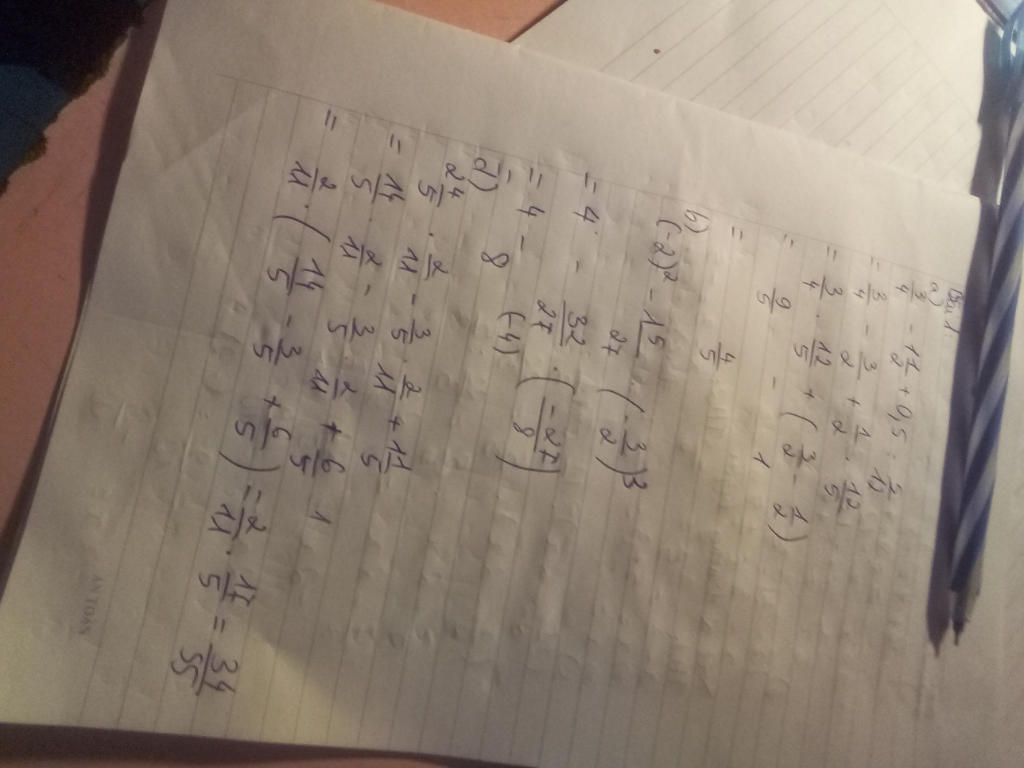 Bài 1.
a)
3/4 - 1 1/2 + 0,5 : 5/12
= 3/4 - 3/2 + 1/2 . 12/5
= 3/4 . 12/5 + (3/2 - 1/2)
= 9/5 - 1
= 4/5
b)
(-2)² - 1 5/27 (-3/2)³
= 4 - 32/27 . (-27/8)
= 4 - (-4)
= 8
d)
2 4/5 . 2/11 - 3/5 . 2/11 + 1 1/5
= 14/5 . 2/11 - 3/5 . 2/11 + 6/5 1
= 2/11 . (14/5 - 3/5 + 6/5) = 2/11 . 17/5 = 34/55